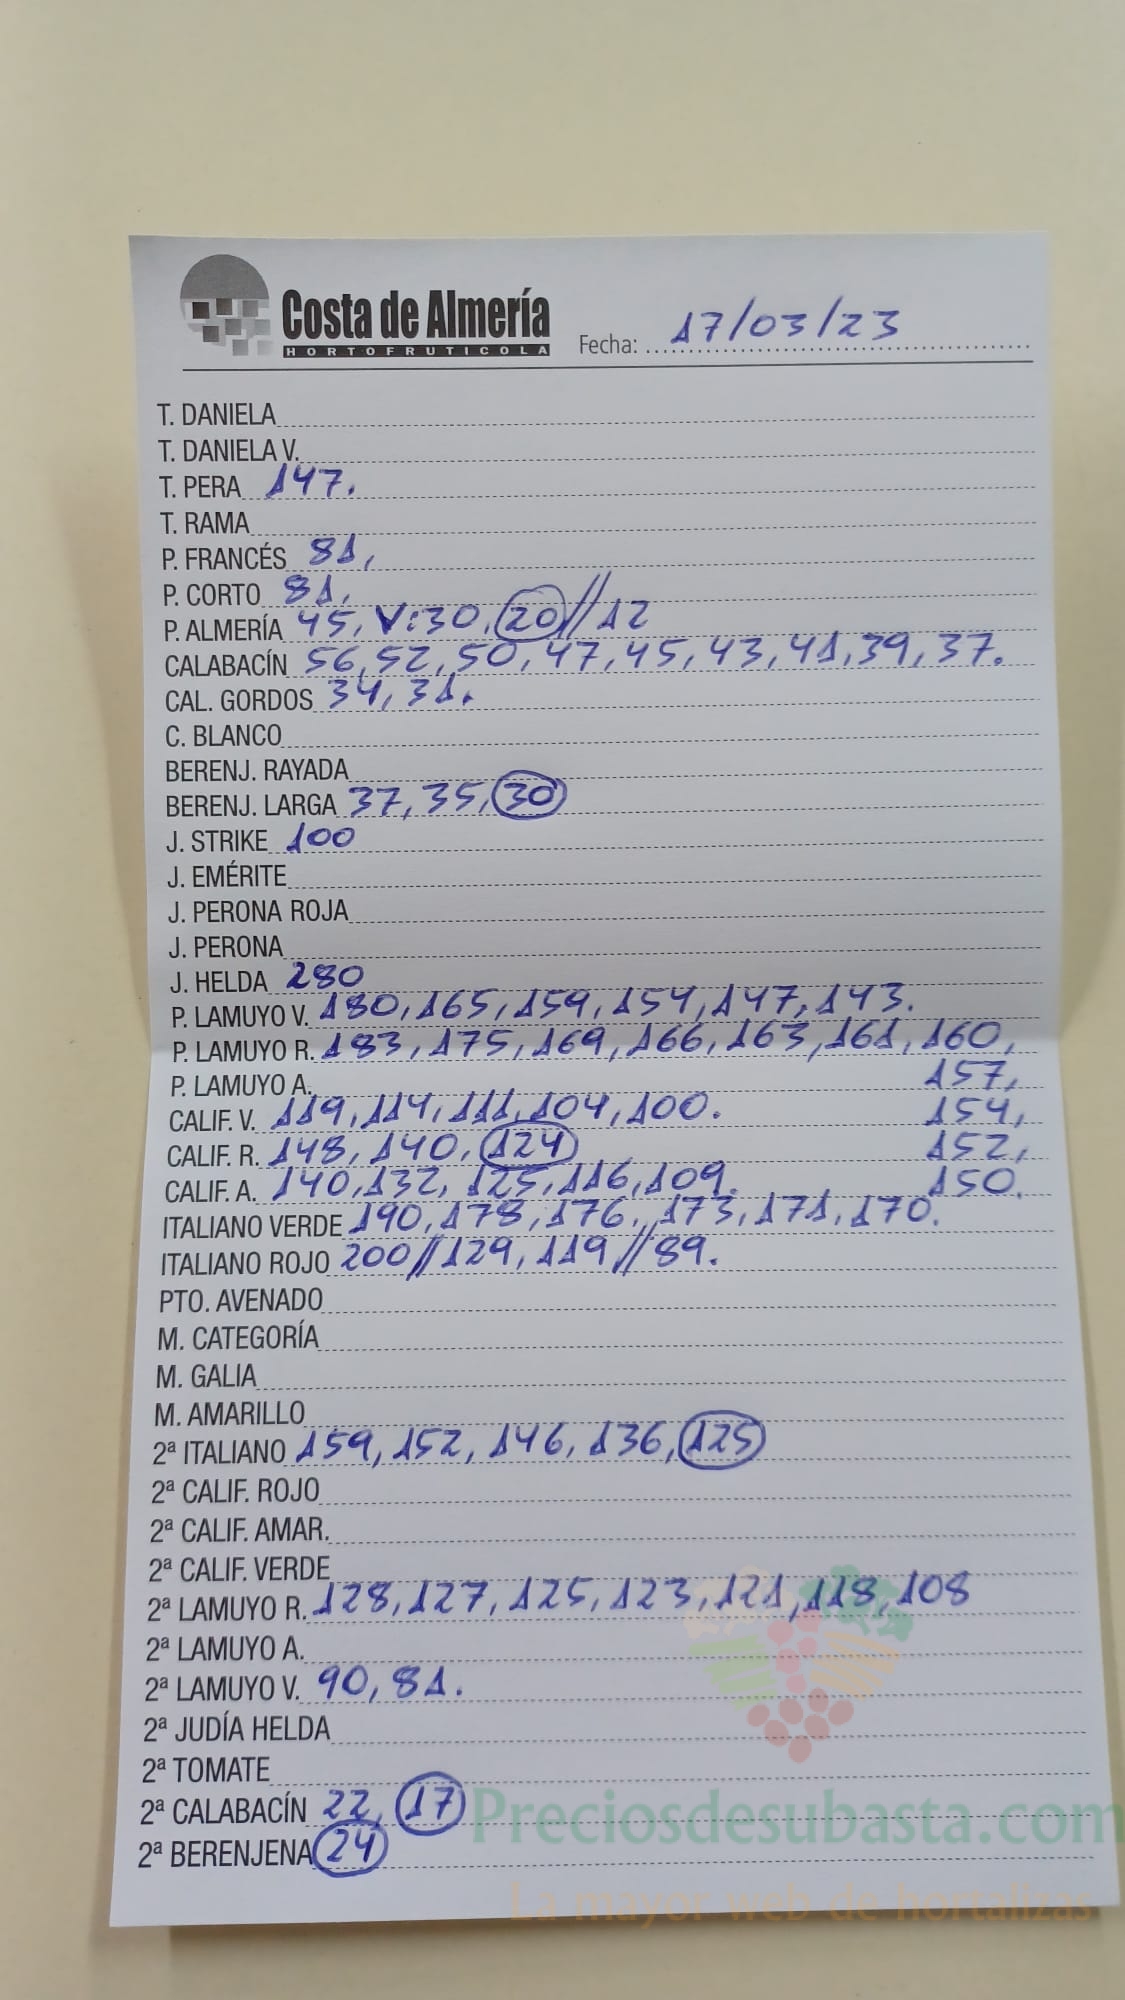 Costa de Almería
HORTOFRUTICOLA
Fecha: 17/03/23
T. DANIELA
T. DANIELA V.
T. PERA 147.
T. RAMA
P. FRANCÉS 81,
P. CORTO 81,
P. ALMERÍA 45, V:30, 20//12
CALABACÍN 56,52,50,47,45,43,41,39,37.
CAL. GORDOS 34,31.
C. BLANCO
BERENJ. RAYADA
BERENJ. LARGA 37,35,30
J. STRIKE 100
J. EMÉRITE
J. PERONA ROJA
J. PERONA
J. HELDA 280
P. LAMUYO V. 180,165,159,154,147,143.
P. LAMUYO R. 183,175,169,166,163,161,160,
P. LAMUYO A. 157,
CALIF. V. 119,114,111,104,100. 154,
CALIF. R. 148,140,124 152,
CALIF. A. 140,132,125,116,109. 150.
ITALIANO VERDE 190,178,176,173,171,170.
ITALIANO ROJO 200//129,119//89.
PTO. AVENADO
M. CATEGORÍA
M. GALIA
M. AMARILLO
2ª ITALIANO 159,152,146,136,125
2ª CALIF. ROJO
2ª CALIF. AMAR.
2ª CALIF. VERDE
2ª LAMUYO R. 128,127,125,123,121,118,108
2ª LAMUYO A.
2ª LAMUYO V. 90,81.
2ª JUDÍA HELDA
2ª TOMATE
2ª CALABACÍN 22, 17
2ª BERENJENA 24
Preciosdesubasta.com
La mayor web de hortalizas